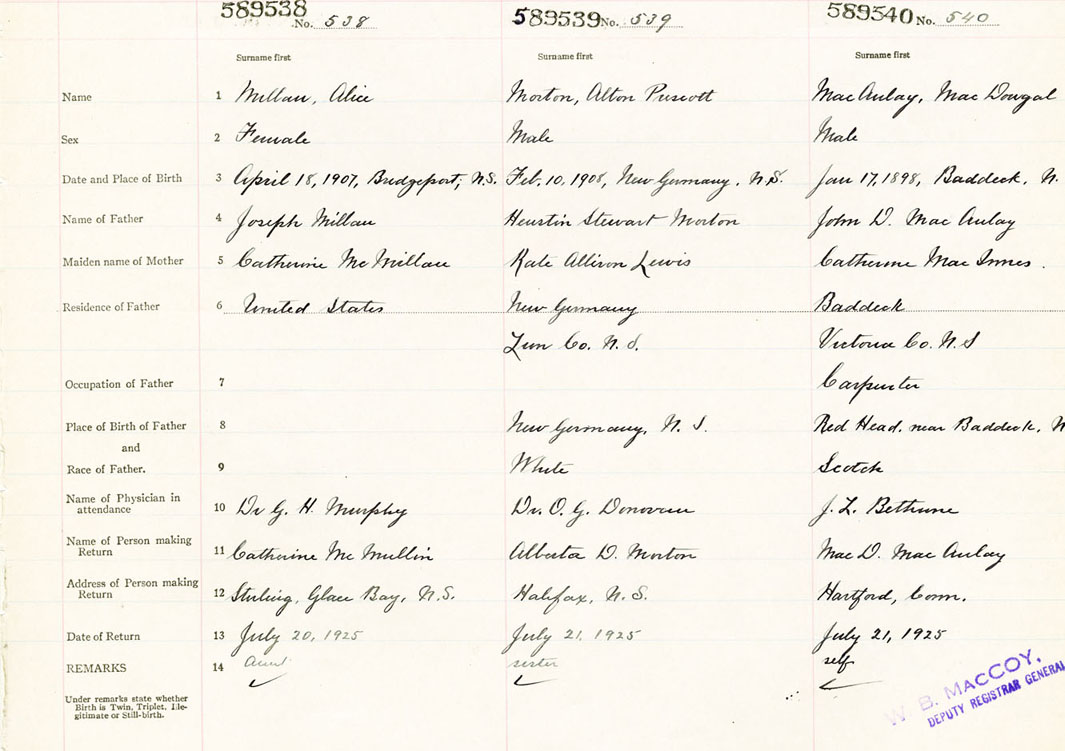 589538 No. 538 589539 No. 539 589540 No. 540
Surname first Surname first Surname first
Name 1 Millan, Alice Morton, Alton Prescott MacAulay, Mac Dougal
Sex 2 Female Male Male
Date and Place of Birth 3 April 18, 1907, Bridgeport, N.S. Feb. 10, 1908, New Germany, N.S. Jan 17, 1898, Baddeck, N.
Name of Father 4 Joseph Millan Stewart Morton John D. MacAulay
Maiden name of Mother 5 Catherine McMillan Kate Allison Lewis Catherine MacInnes.
Residence of Father 6 United States New Germany Baddeck
Lun Co. N.S. Victoria Co. N.S
Occupation of Father 7 Carpenter
Place of Birth of Father 8 New Germany, N.S. Red Head, near Baddeck, N
and
Race of Father. 9 White Scotch
Name of Physician in
attendance 10 Dr G. H. Murphy Dr. O. G. Donovan J. L. Bethune
Name of Person making
Return 11 Catherine McMullin Alberta D. Morton Mac D. MacAulay
Address of Person making
Return 12 Sterling, Glace Bay, N.S. Halifax, N.S. Hartford, Conn.
Date of Return 13 July 20, 1925 July 21, 1925 July 21, 1925
REMARKS 14 aunt sister self
Under remarks state whether
Birth is Twin, Triplet, Ille-
gitimate or Still-birth.
W. B. MACCOY,
DEPUTY REGISTRAR GENERAL